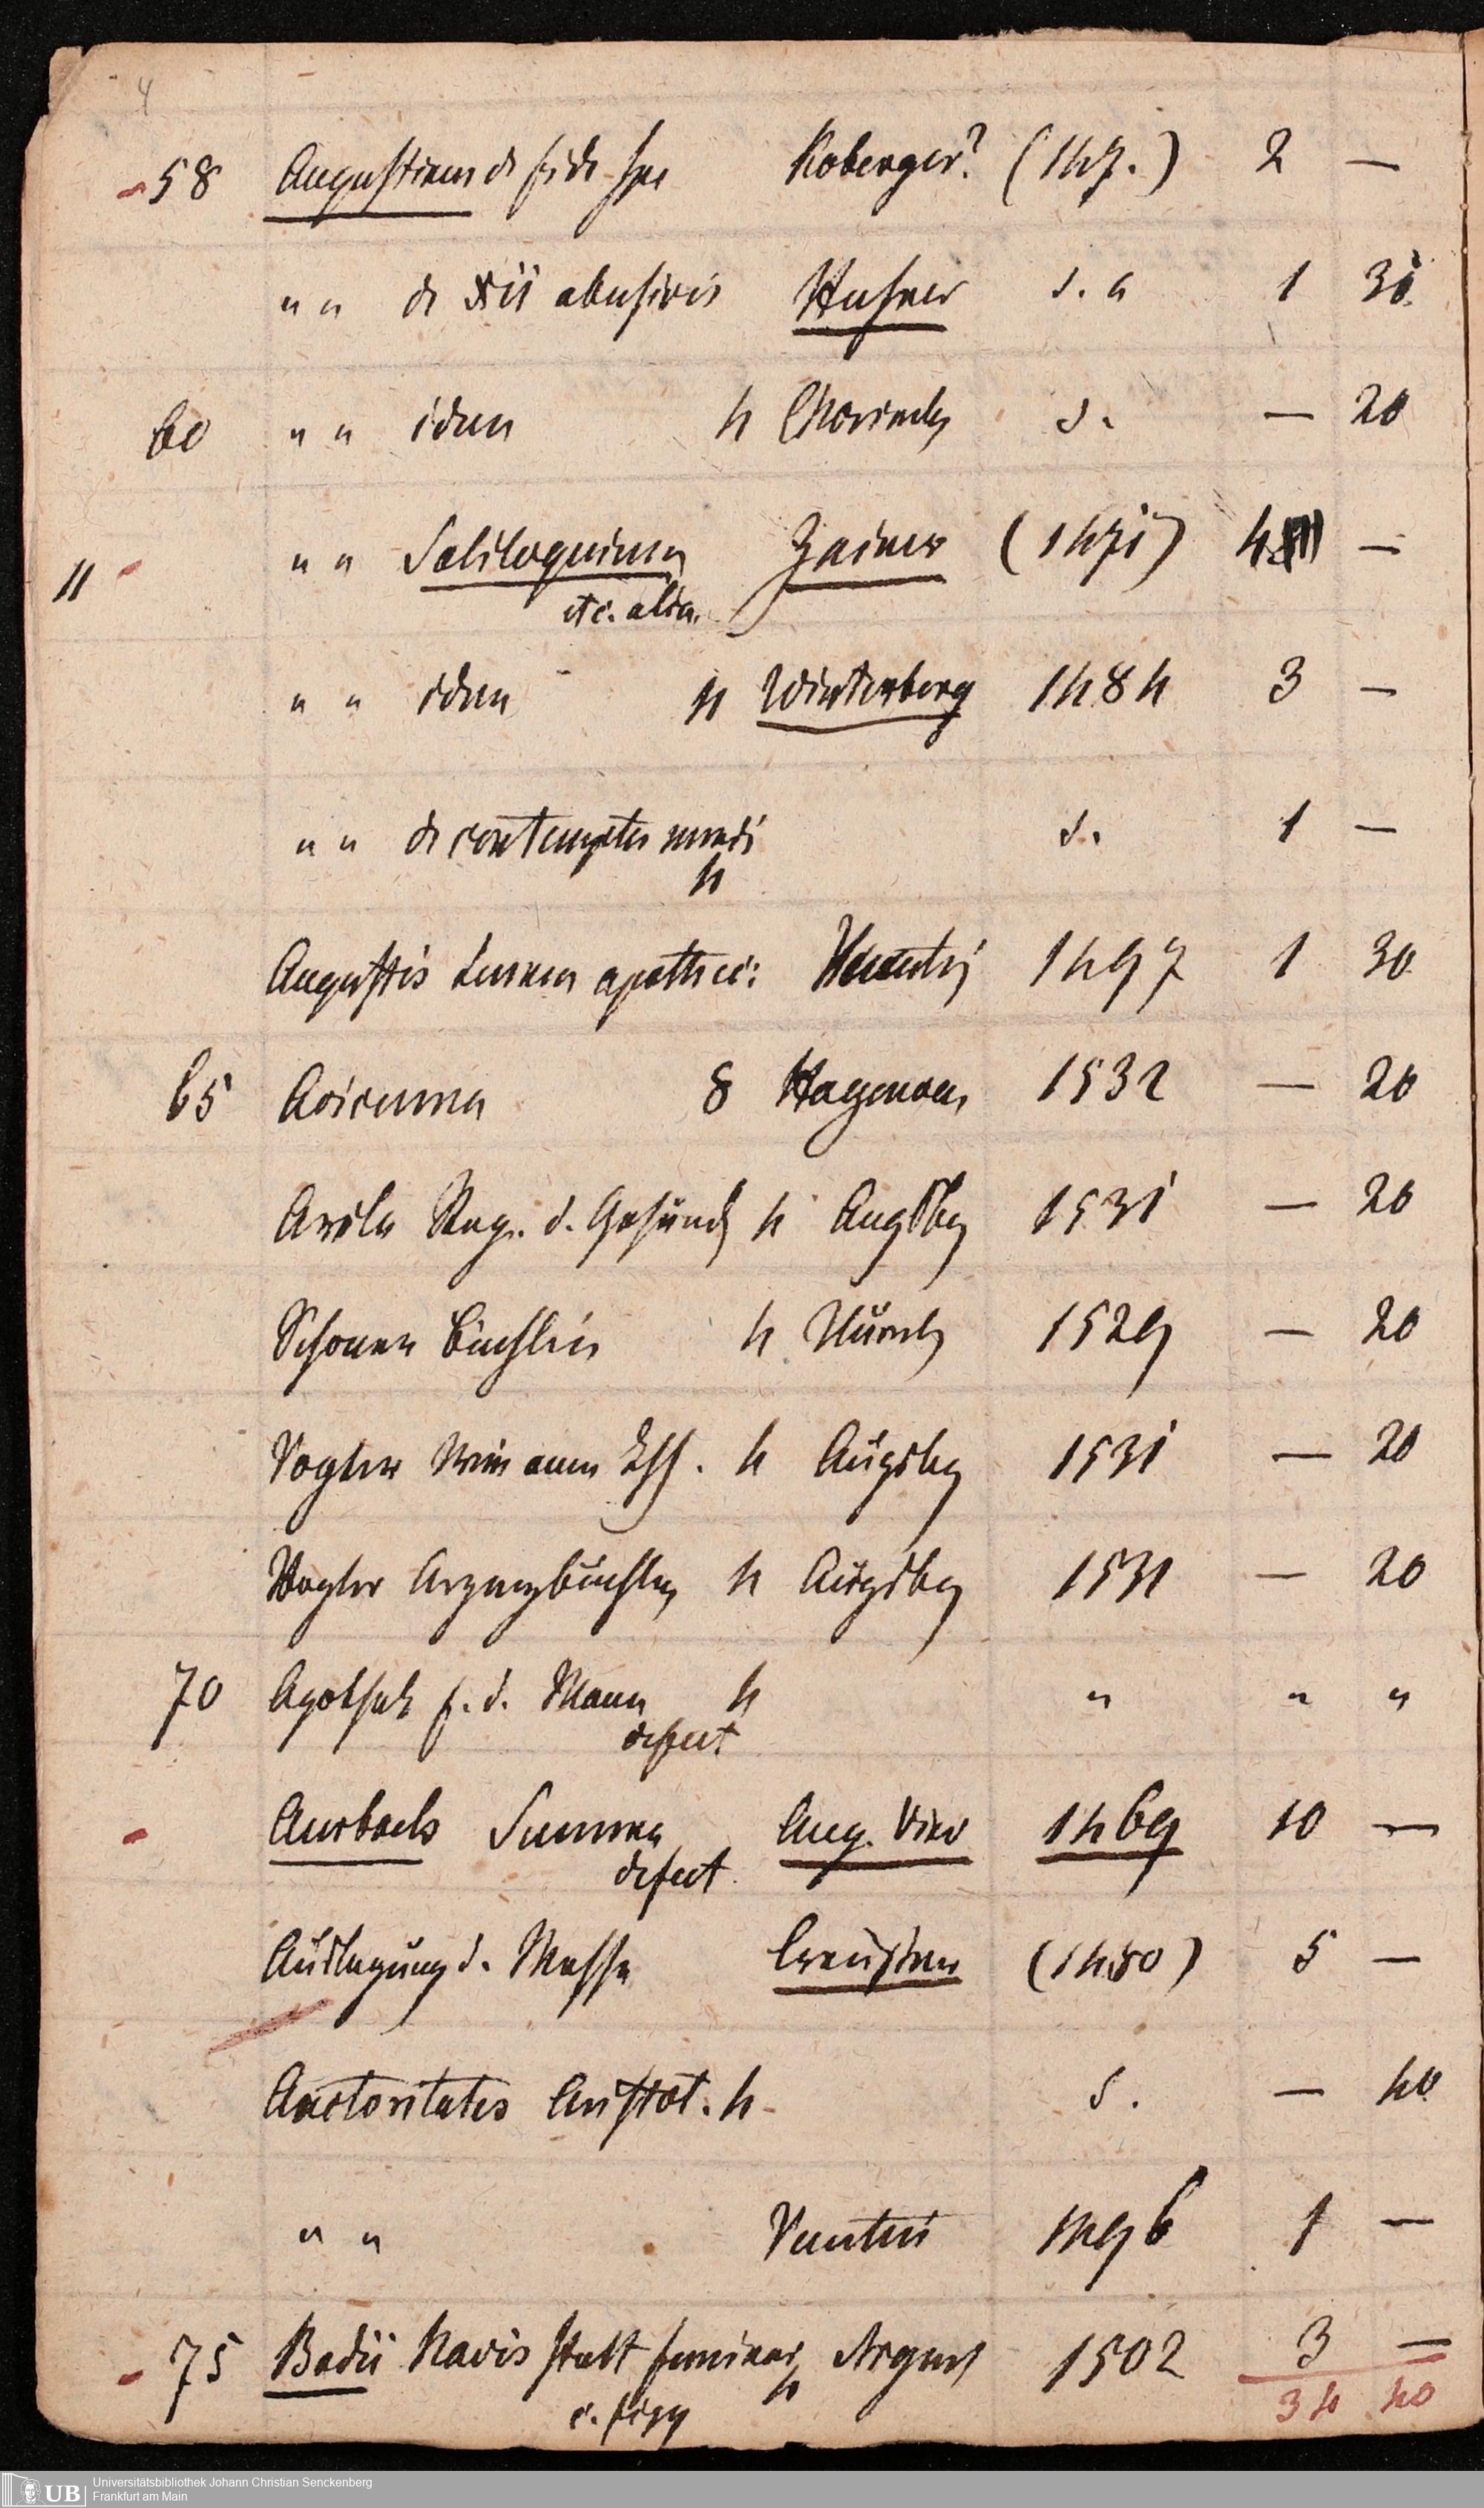 4
58 Augustinus de fide spe Koberger? (147.) 2 —
" " de xii abusivis Husner s. a 1 30
60 " " idem 4 s. — 20
11 " " Soliloquium Zainer (1471) 4 —
etc. alia.
" " idem 4 Winterberg 1484 3 —
" " de contemptu mundi s. 1 —
4
Augustis Lumen apothec: Venetiis 1497 1 30
65 Avicenna 8 Hagenau 1532 — 20
Avila Reg. d. Gesund 4 Augsbg 1531 — 20
Schoner Büchlin 4 Nürnbg 1529 — 20
Vogter Wie man 4 Augsbg 1531 — 20
Vogter Arzneybüchlin 4 Augsbg 1531 — 20
70 Apothek f. d. Mann 4 " " "
defect
Aurbachs Summa Aug. Vind 1469 10 —
defect
Auslegung d. Messe Creussner (1480) 5 —
Auctoritates Aristot. 4 s. — 40
" " Venetiis 1496 1 —
75 Badii Navis stult feminar 4 Argent 1502 3 —
c. figg 34 40
UB Universitätsbibliothek Johann Christian Senckenberg
Frankfurt am Main